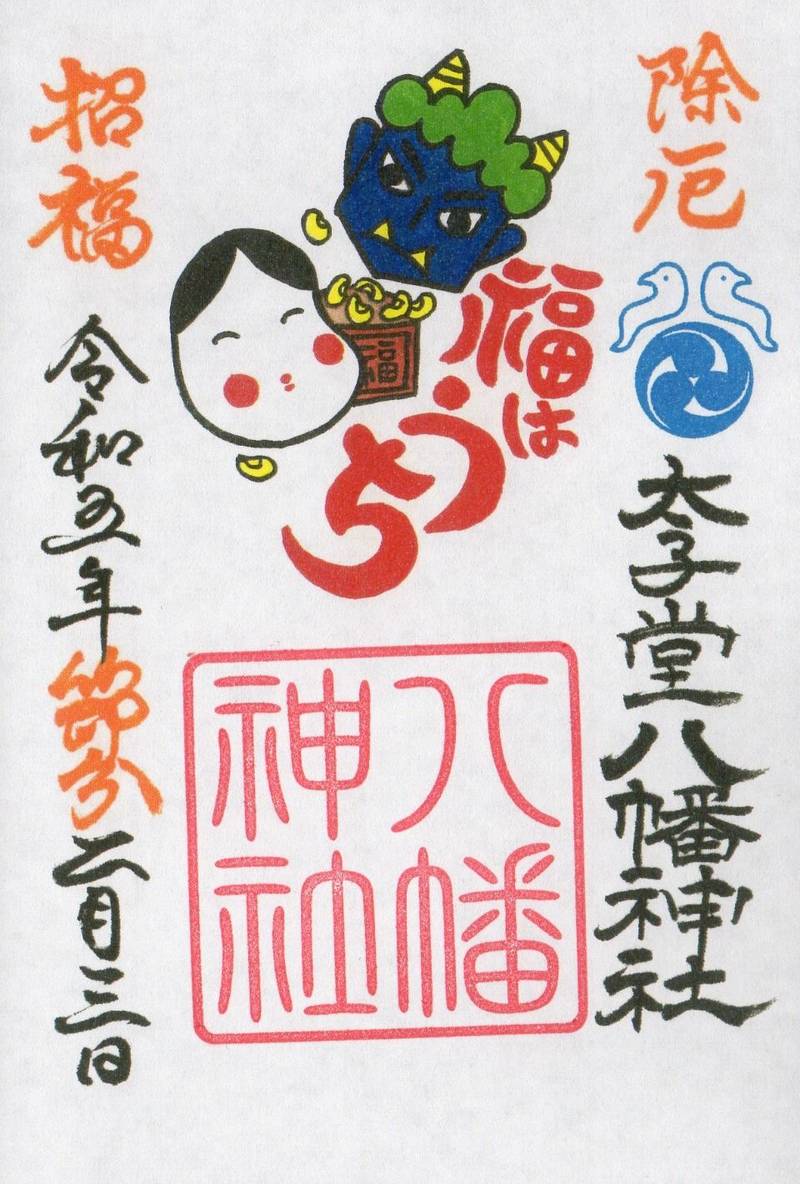 除厄
太子堂八幡神社
福は
うち
福
八幡
神社
招福
令和五年節分二月三日